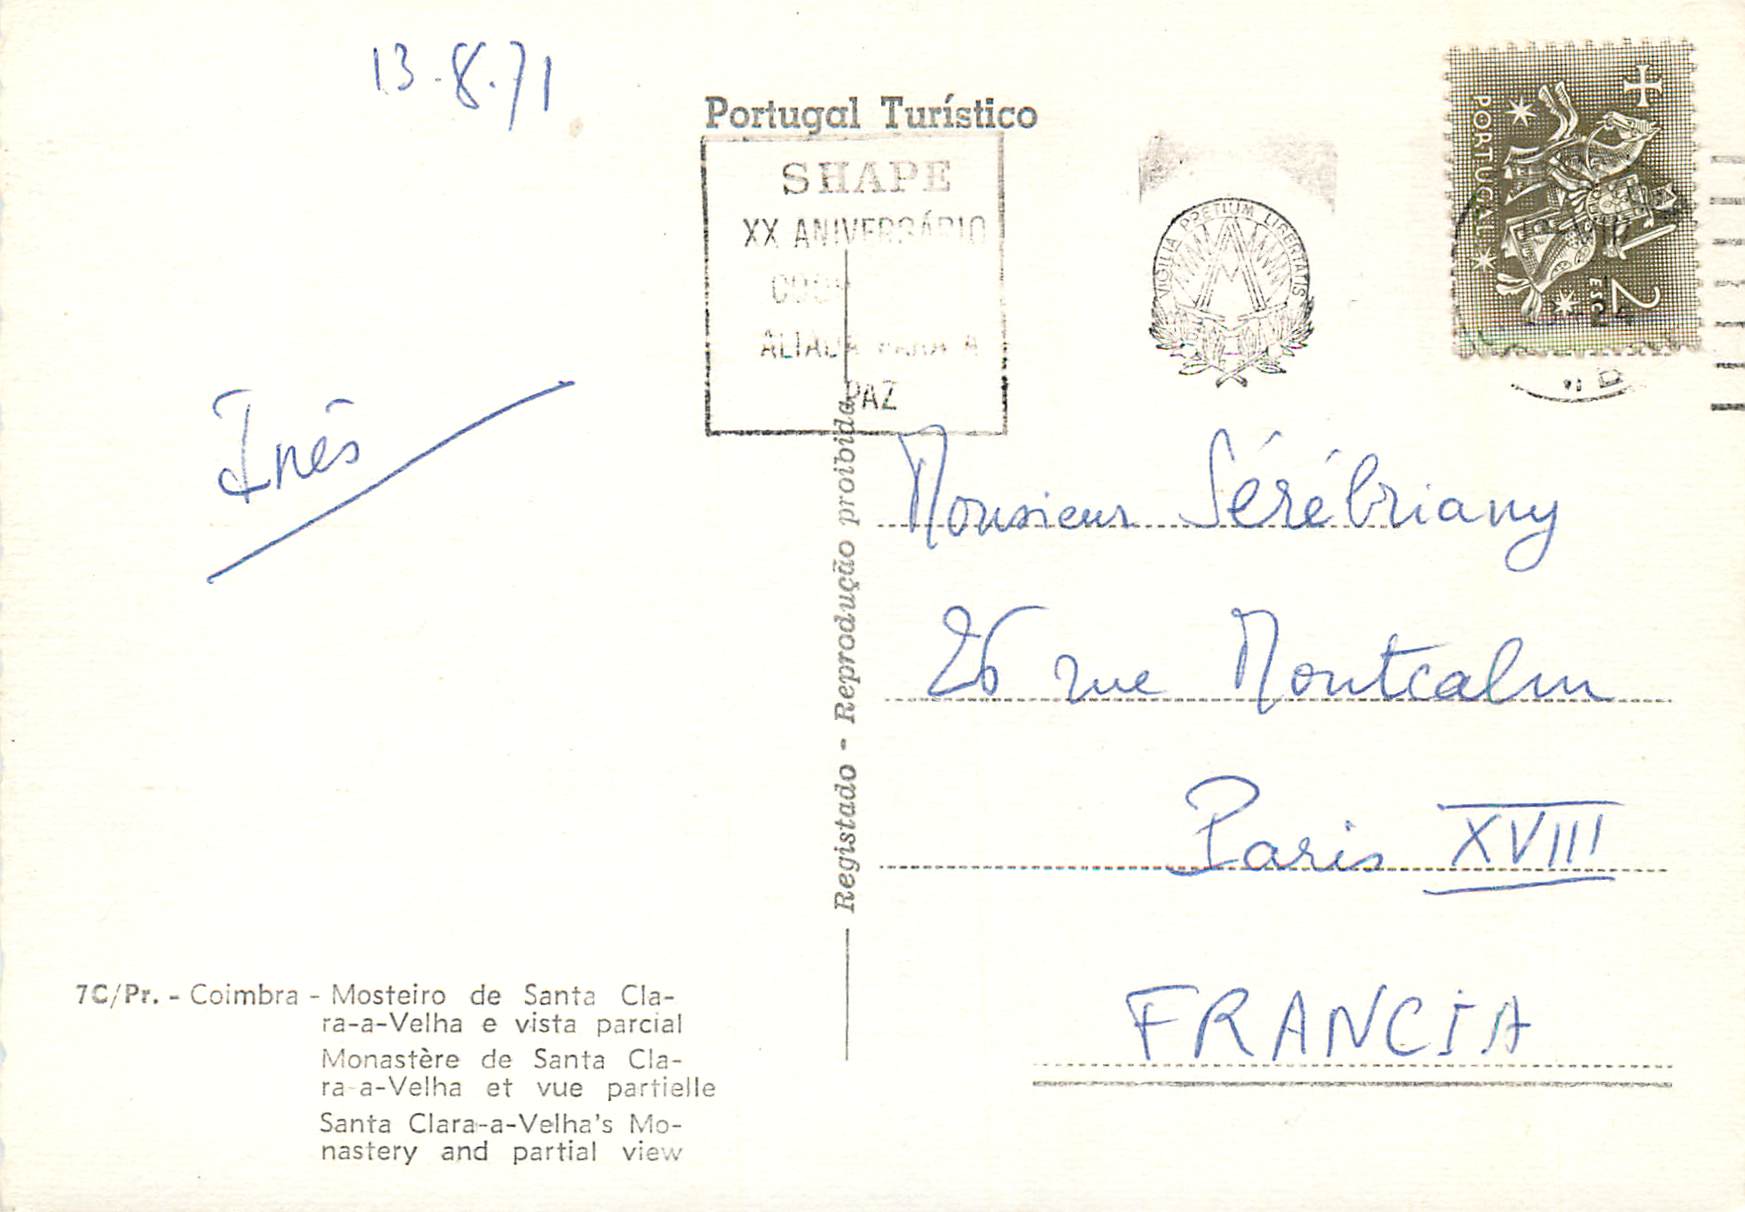 13.8.71
Portugal Turístico
SHAPE
XX ANIVERSÁRIO
ALIADA PARA A
PAZ
VIGILIA PRETIUM LIBERTATIS
PORTUGAL
2 ESC
Inês
Monsieur Sérébriany
26 rue Montcalm
Paris XVIII
FRANCIA
Registado - Reprodução proibida
7C/Pr. - Coimbra - Mosteiro de Santa Cla-
ra-a-Velha e vista parcial
Monastère de Santa Cla-
ra-a-Velha et vue partielle
Santa Clara-a-Velha's Mo-
nastery and partial view